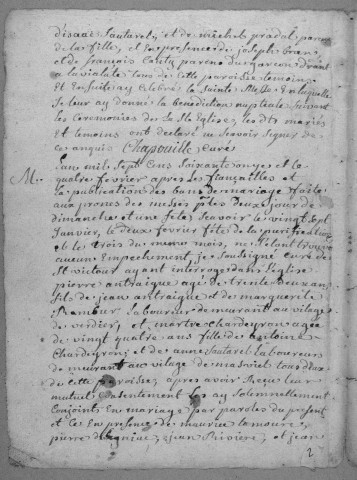 d'isaac Soutarel, et de michel pradal parens
de la fille, et En presence de joseph
et de francois parens du garcon
a la tous de cette paroisse temoins
Et En suite ay Celebré la Sainte Messe En laquelle
Je leur ay donné la benediction nuptiale suivant
les Ceremonies de la Ste Eglise, les dts mariés
et temoins ont declaré ne Scavoir Signer de
ce enquis Chapouille curé
M. L'an mil Sept Cens Soixante onze et le
quatre fevrier apres les fiançailles et
la publication des bans de mariage faite
aux prones des messes ples Deux jour de
dimanche et une fete, Scavoir le vingt Sept
Janvier, le deux fevrier fete de la purification
et le trois du meme mois, ne S'etant trouvé
aucun Empechement, je Soussigné curé de
St victour ayant interrogé dans l'eglise
pierre antraigue agé de trente deux ans
fils de jean antraigue et de marguerite
Rambur laboureur demeurant au village
de verdier, et marthe Chardeyron agée
de vingt quatre ans fille de antoine
Chardeyron, et de anne Soutarel laboureur
demeurant au vilage de masviel tous deux
de cette paroisse, apres avoir Reçu leur
mutuel Consentement les ay Solemnellement
Conjoints En mariage par paroles de present
et ce En presence de maurice lamoure,
pierre , jean Riviere, et jean
2